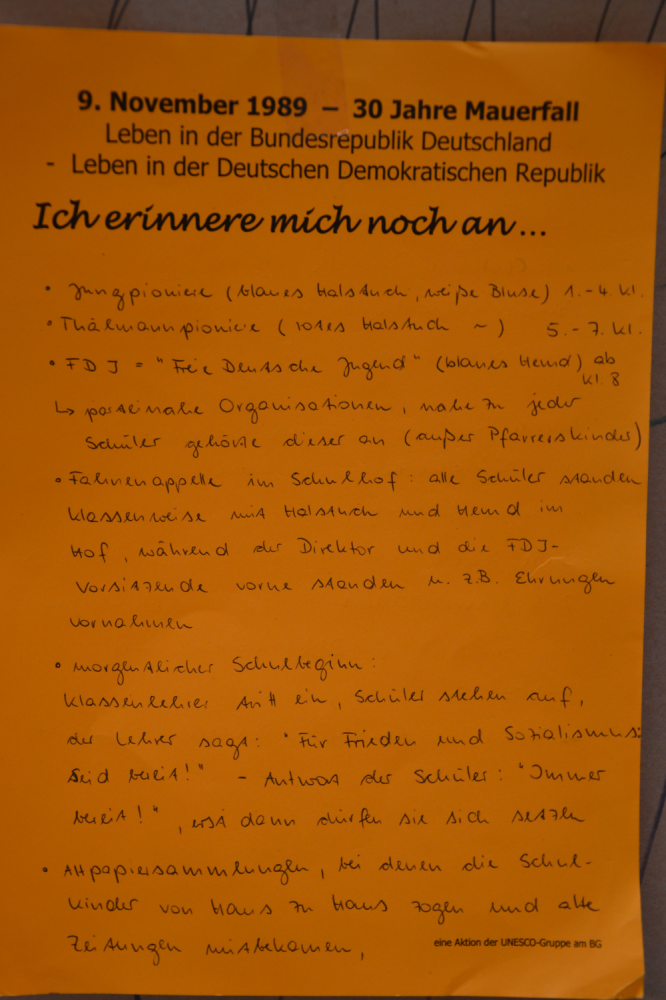 9. November 1989 – 30 Jahre Mauerfall
Leben in der Bundesrepublik Deutschland
- Leben in der Deutschen Demokratischen Republik
Ich erinnere mich noch an ...
• Jungpioniere (blaues Halstuch, weiße Bluse) 1.-4. Kl.
• Thälmannpioniere (rotes Halstuch ~) 5.-7. Kl.
• FDJ = "Freie Deutsche Jugend" (blaues Hemd) ab
Kl. 8
↳ parteinahe Organisationen, nahezu jeder
Schüler gehörte dieser an (außer Pfarrerskinder)
• Fahnenappelle im Schulhof: alle Schüler standen
klassenweise mit Halstuch und Hemd im
Hof, während der Direktor und die FDJ-
Vorsitzende vorne standen u. z.B. Ehrungen
vornahmen
• morgentlicher Schulbeginn:
Klassenlehrer tritt ein, Schüler stehen auf,
der Lehrer sagt: "Für Frieden und Sozialismus:
Seid bereit!" - Antwort der Schüler: "Immer
bereit!", erst dann dürfen sie sich setzen
• Altpapiersammlungen, bei denen die Schul-
kinder von Haus zu Haus zogen und alte
Zeitungen mitbekamen,
eine Aktion der UNESCO-Gruppe am BG